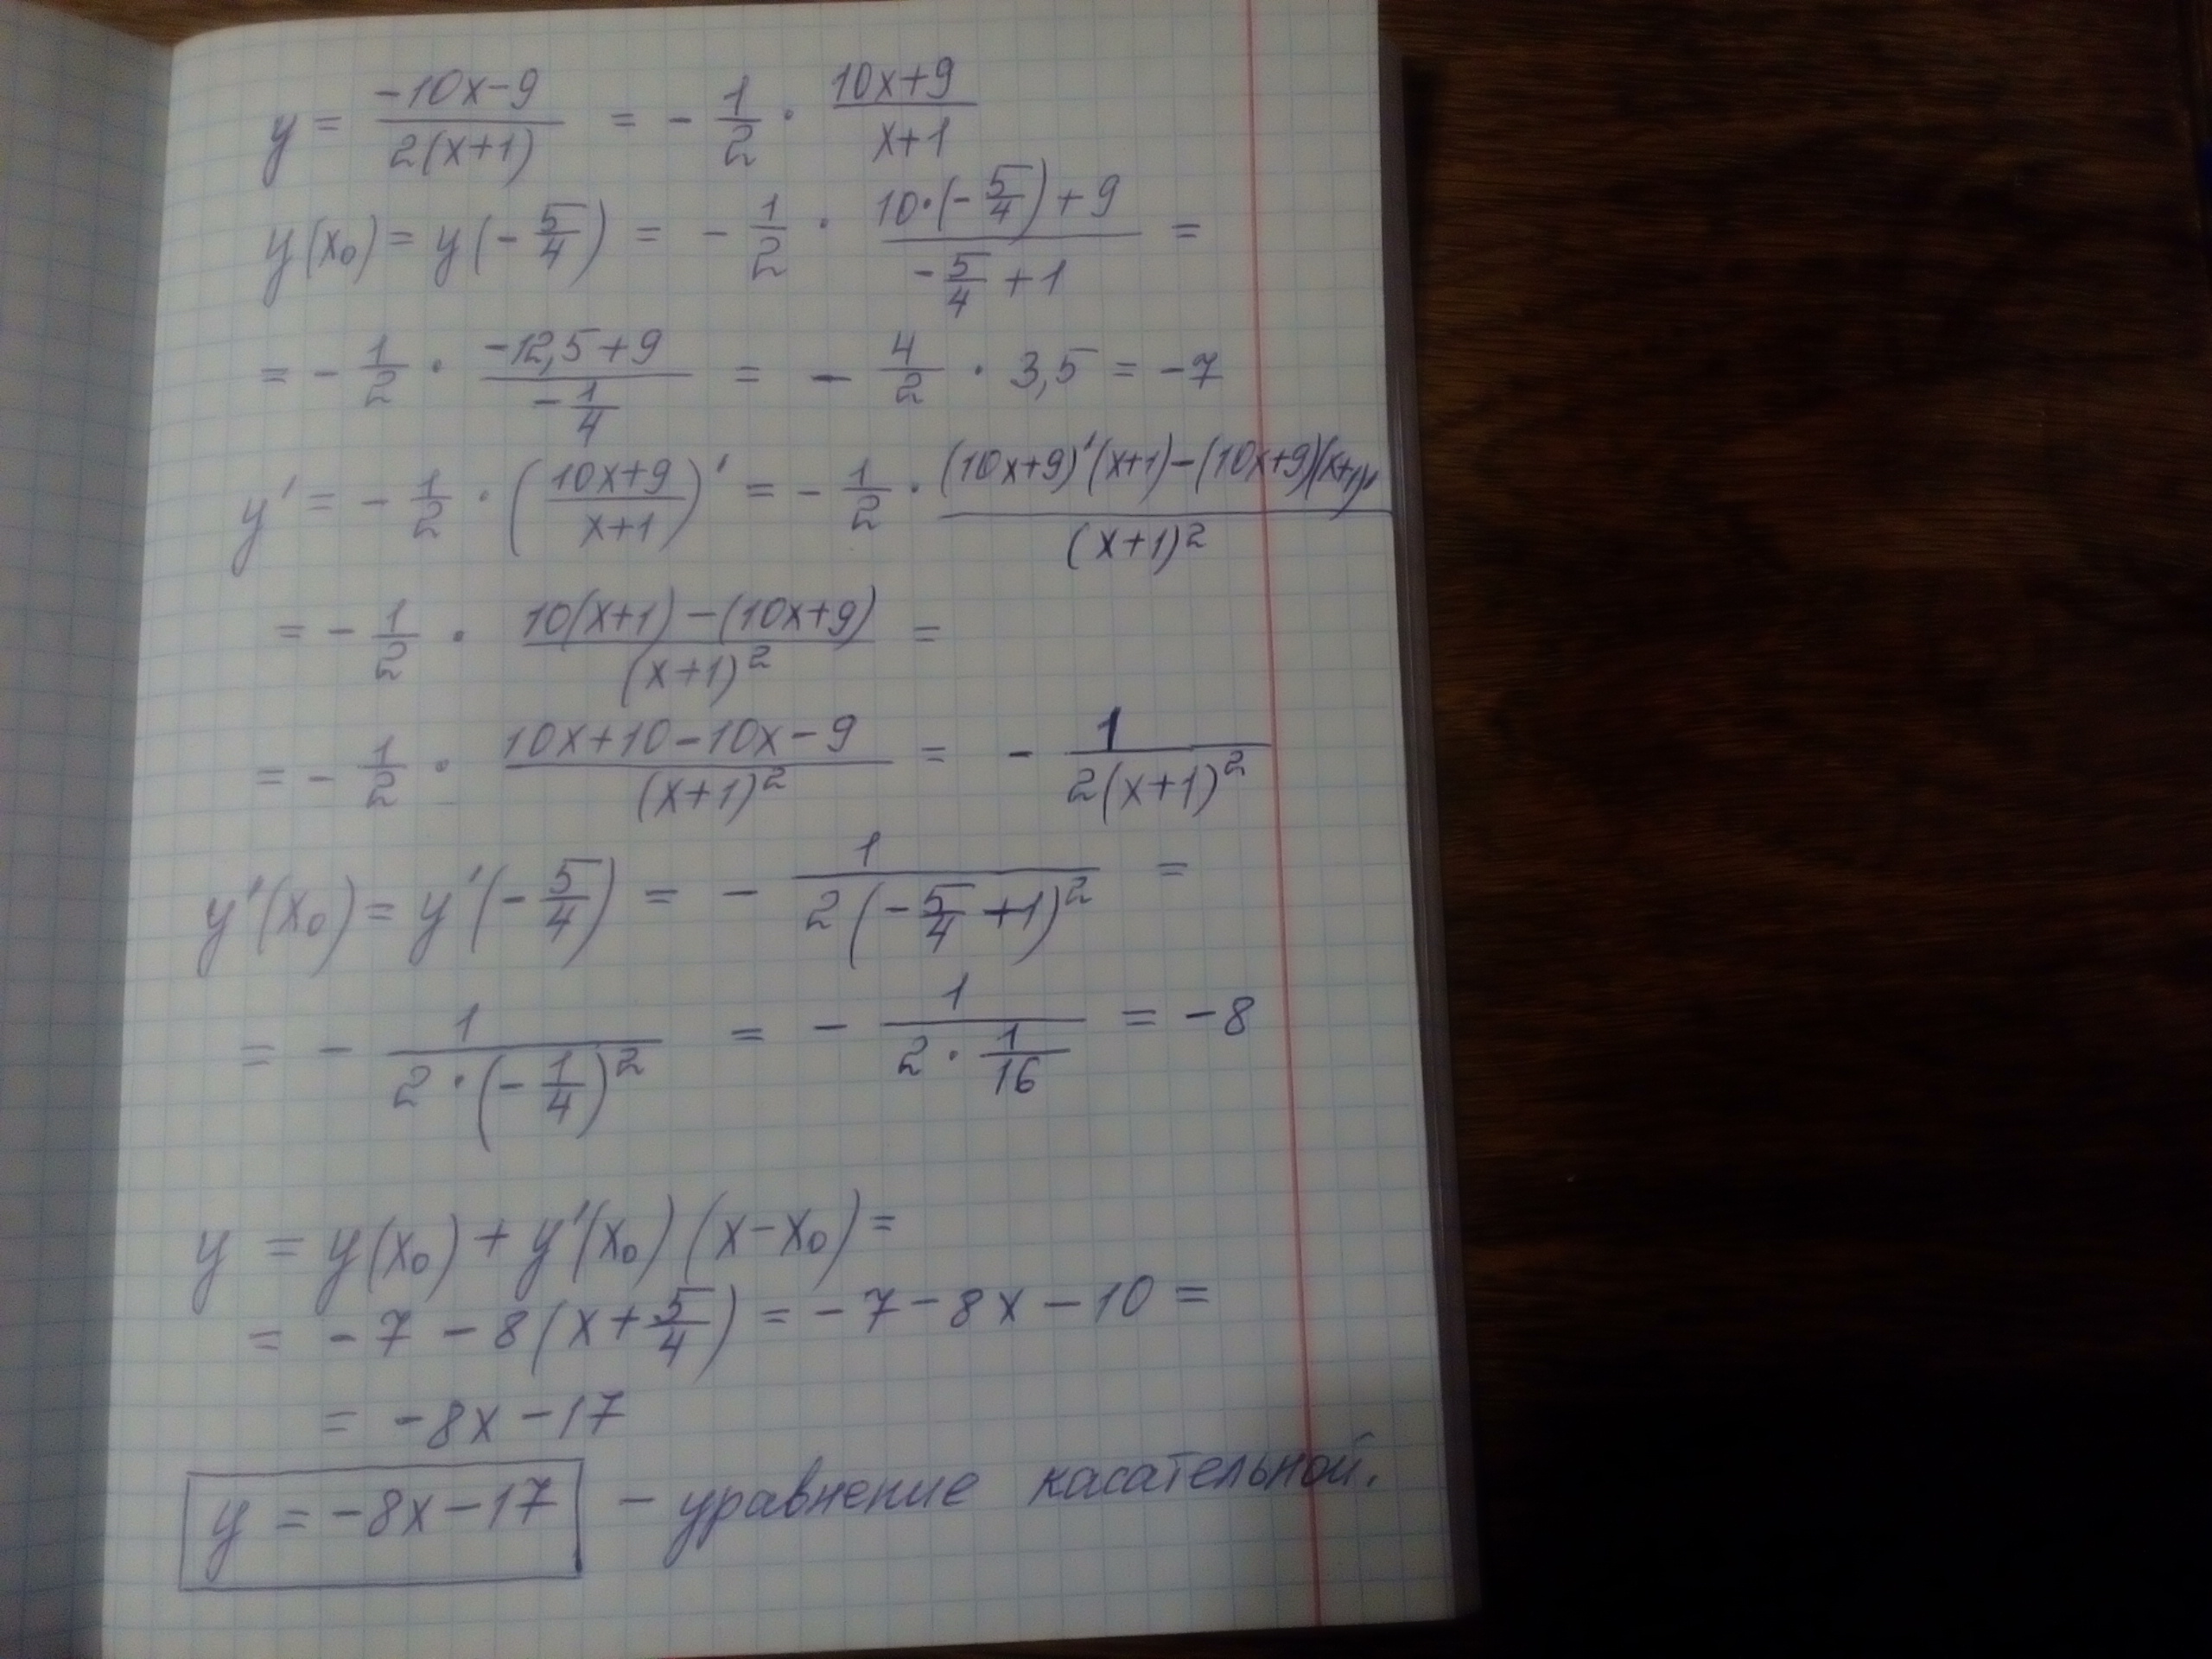 y = \frac{-10x-9}{2(x+1)} = -\frac{1}{2} \cdot \frac{10x+9}{x+1}
y(x_0) = y(-\frac{5}{4}) = -\frac{1}{2} \cdot \frac{10 \cdot (-\frac{5}{4}) + 9}{-\frac{5}{4} + 1} =
= -\frac{1}{2} \cdot \frac{-12,5+9}{-\frac{1}{4}} = -\frac{4}{2} \cdot 3,5 = -7
y' = -\frac{1}{2} \cdot (\frac{10x+9}{x+1})' = -\frac{1}{2} \cdot \frac{(10x+9)'(x+1)-(10x+9)(x+1)'}{(x+1)^2}
= -\frac{1}{2} \cdot \frac{10(x+1)-(10x+9)}{(x+1)^2} =
= -\frac{1}{2} \cdot \frac{10x+10-10x-9}{(x+1)^2} = -\frac{1}{2(x+1)^2}
y'(x_0) = y'(-\frac{5}{4}) = -\frac{1}{2(-\frac{5}{4}+1)^2} =
= -\frac{1}{2 \cdot (-\frac{1}{4})^2} = -\frac{1}{2 \cdot \frac{1}{16}} = -8
y = y(x_0) + y'(x_0)(x-x_0) =
= -7 - 8(x+\frac{5}{4}) = -7-8x-10 =
= -8x-17
y = -8x-17 - уравнение касательной.